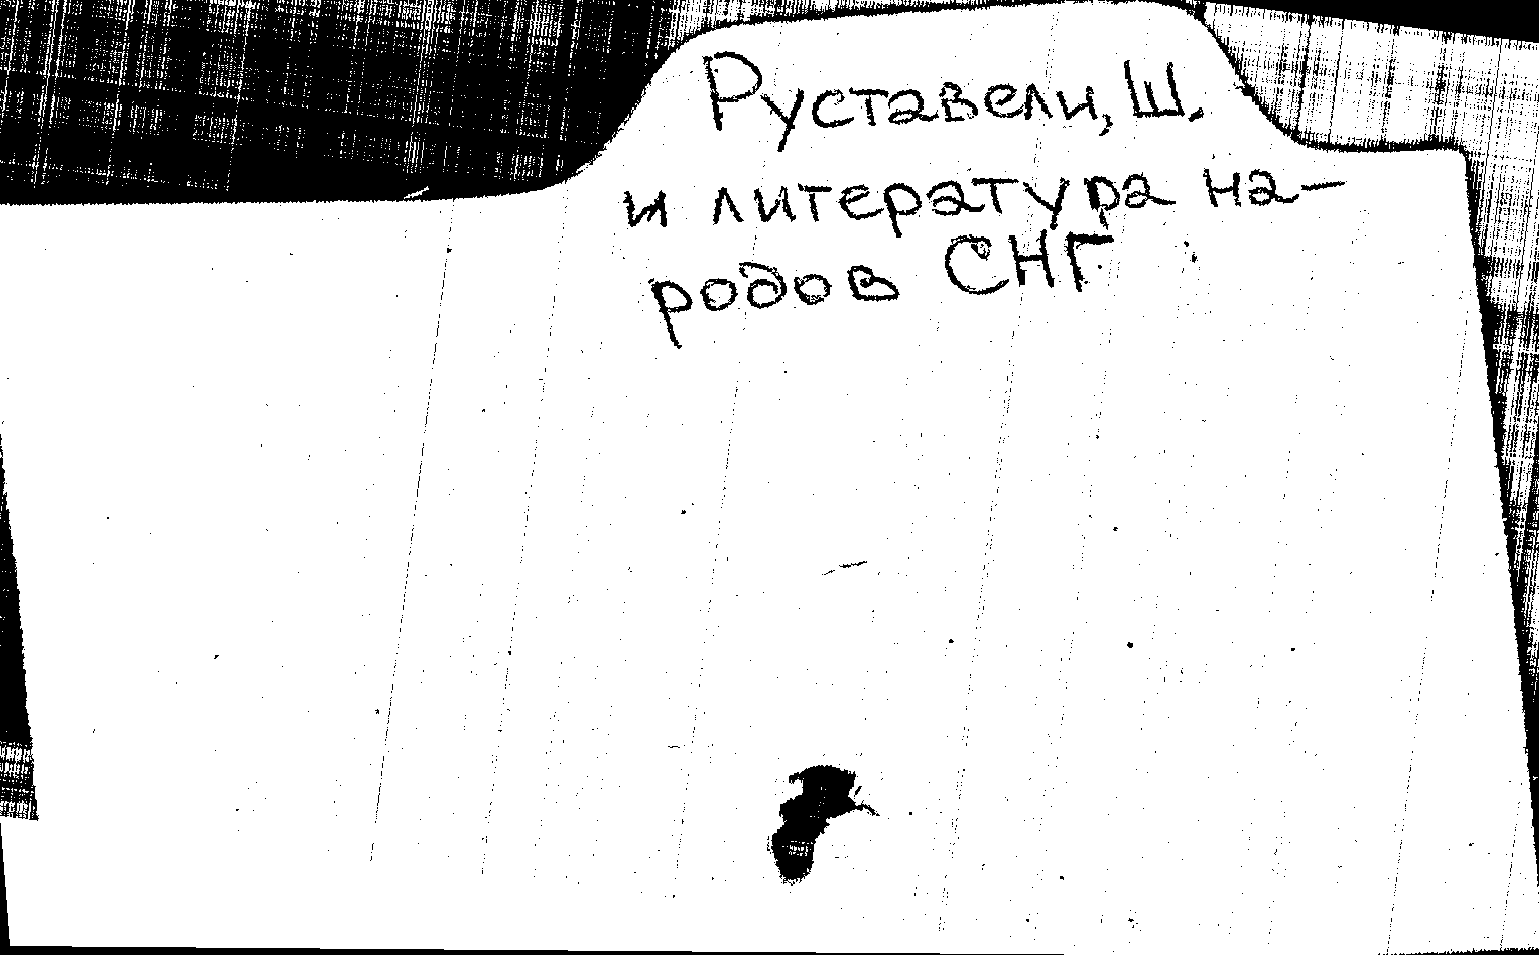 Руставели, Ш.
и литература на-
родов СНГ